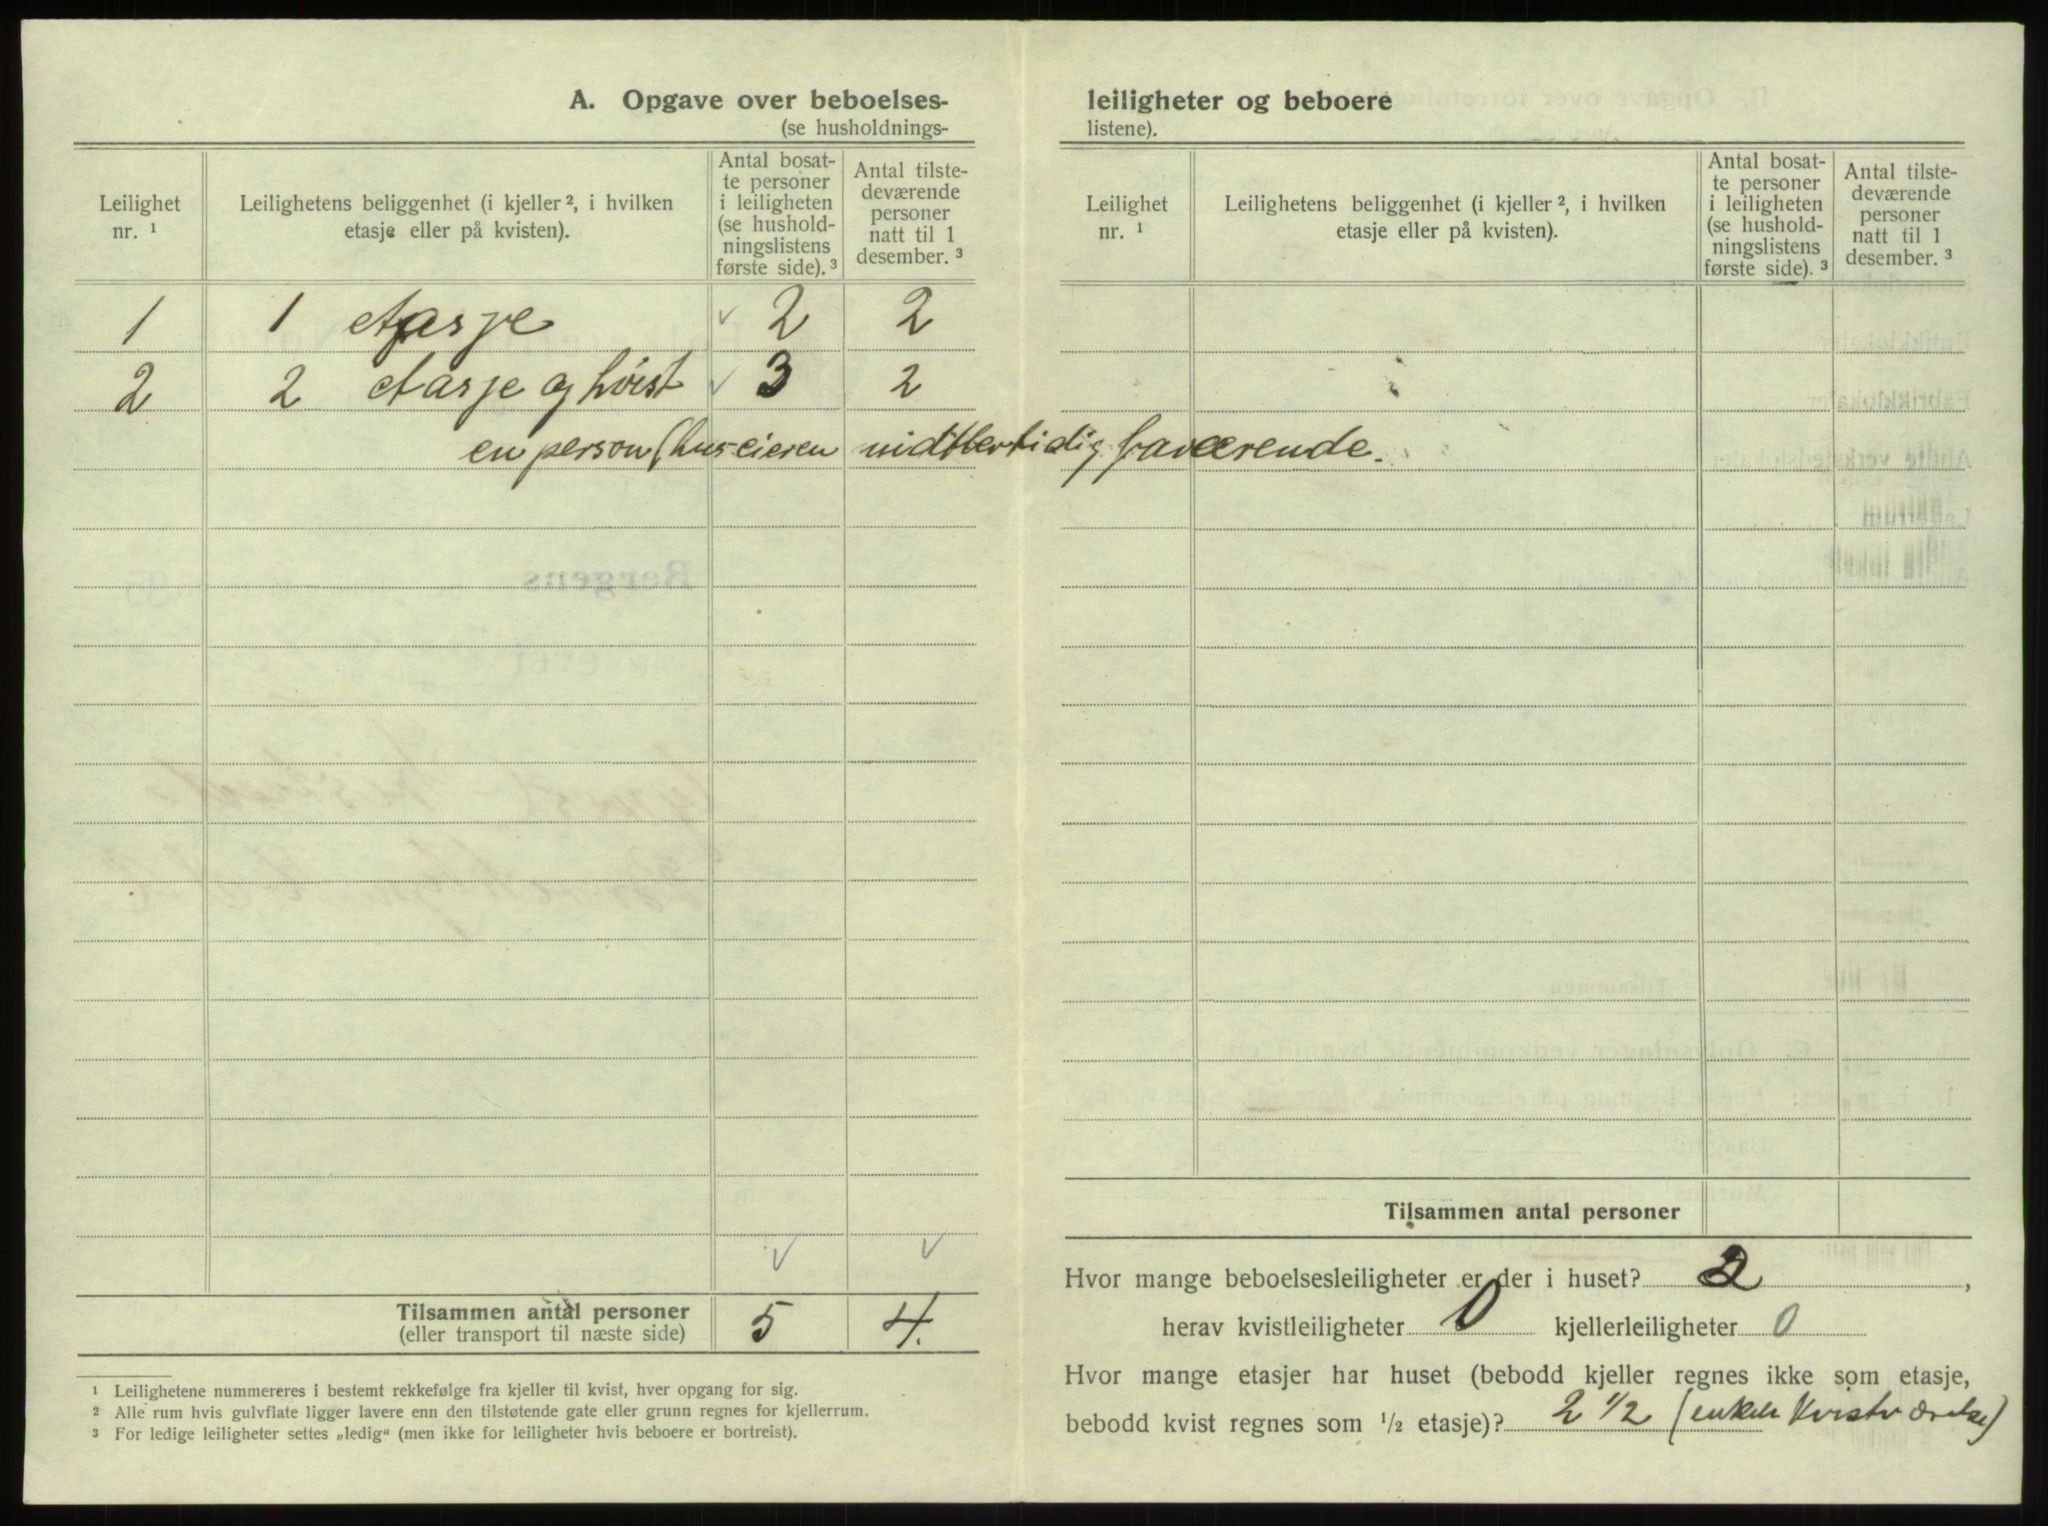 A. Opgave over beboelses-
(se husholdnings-
Leilighet nr. 1
Leilighetens beliggenhet (i kjeller 2, i hvilken
etasje eller på kvisten).
Antal bosat-
te personer
i leiligheten
(se hushold-
ningslistens
første side). 3
Antal tilste-
deværende
personer
natt til 1
desember. 3
1 1 etasje 2 2
2 2 etasje og kvist 3 2
en person (huseieren midtlertidig fraværende.
Tilsammen antal personer 5 4.
(eller transport til næste side)
1 Leilighetene nummereres i bestemt rekkefølge fra kjeller til kvist, hver opgang for sig.
2 Alle rum hvis gulvflate ligger lavere enn den tilstøtende gate eller grunn regnes for kjellerrum.
3 For ledige leiligheter settes „ledig" (men ikke for leiligheter hvis beboere er bortreist).
leiligheter og beboere
listene).
Leilighet
nr. 1
Leilighetens beliggenhet (i kjeller 2, i hvilken
etasje eller på kvisten).
Antal bosat-
te personer
i leiligheten
(se hushold-
ningslistens
første side). 3
Antal tilste-
deværende
personer
natt til 1
desember. 3
Tilsammen antal personer
Hvor mange beboelsesleiligheter er der i huset? 2,
herav kvistleiligheter 0 kjellerleiligheter 0
Hvor mange etasjer har huset (bebodd kjeller regnes ikke som etasje,
bebodd kvist regnes som 1/2 etasje)? 2 1/2 (enkelt kvistværelse)